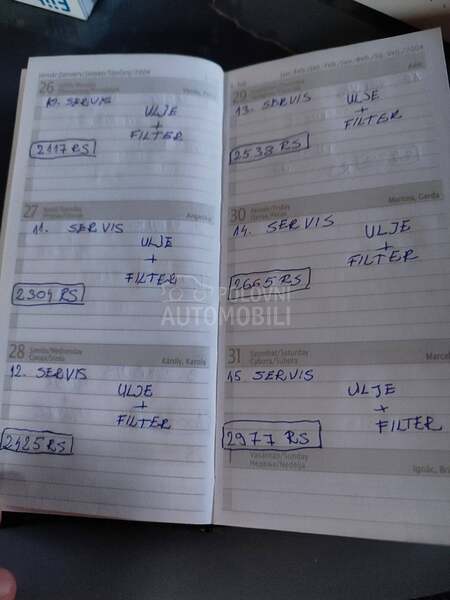 26
10. SERVIS
ULJE
+
FILTER
2117 RS
27
Angelika
11. SERVIS
ULJE
+
FILTER
2304 RS
28
Szerda/Wednesday
Károly, Karola
12. SERVIS
ULJE
+
FILTER
2425 RS
29
13. SERVIS
ULJE
+
FILTER
2538 RS
30
Martina, Gerda
14. SERVIS
ULJE
+
FILTER
2665 RS
31
Szombat/Saturday
Marcel
15. SERVIS
ULJE
+
FILTER
2977 RS
Vasárnap/Sunday
Ignác, Br
POLOVNI
AUTOMOBILI